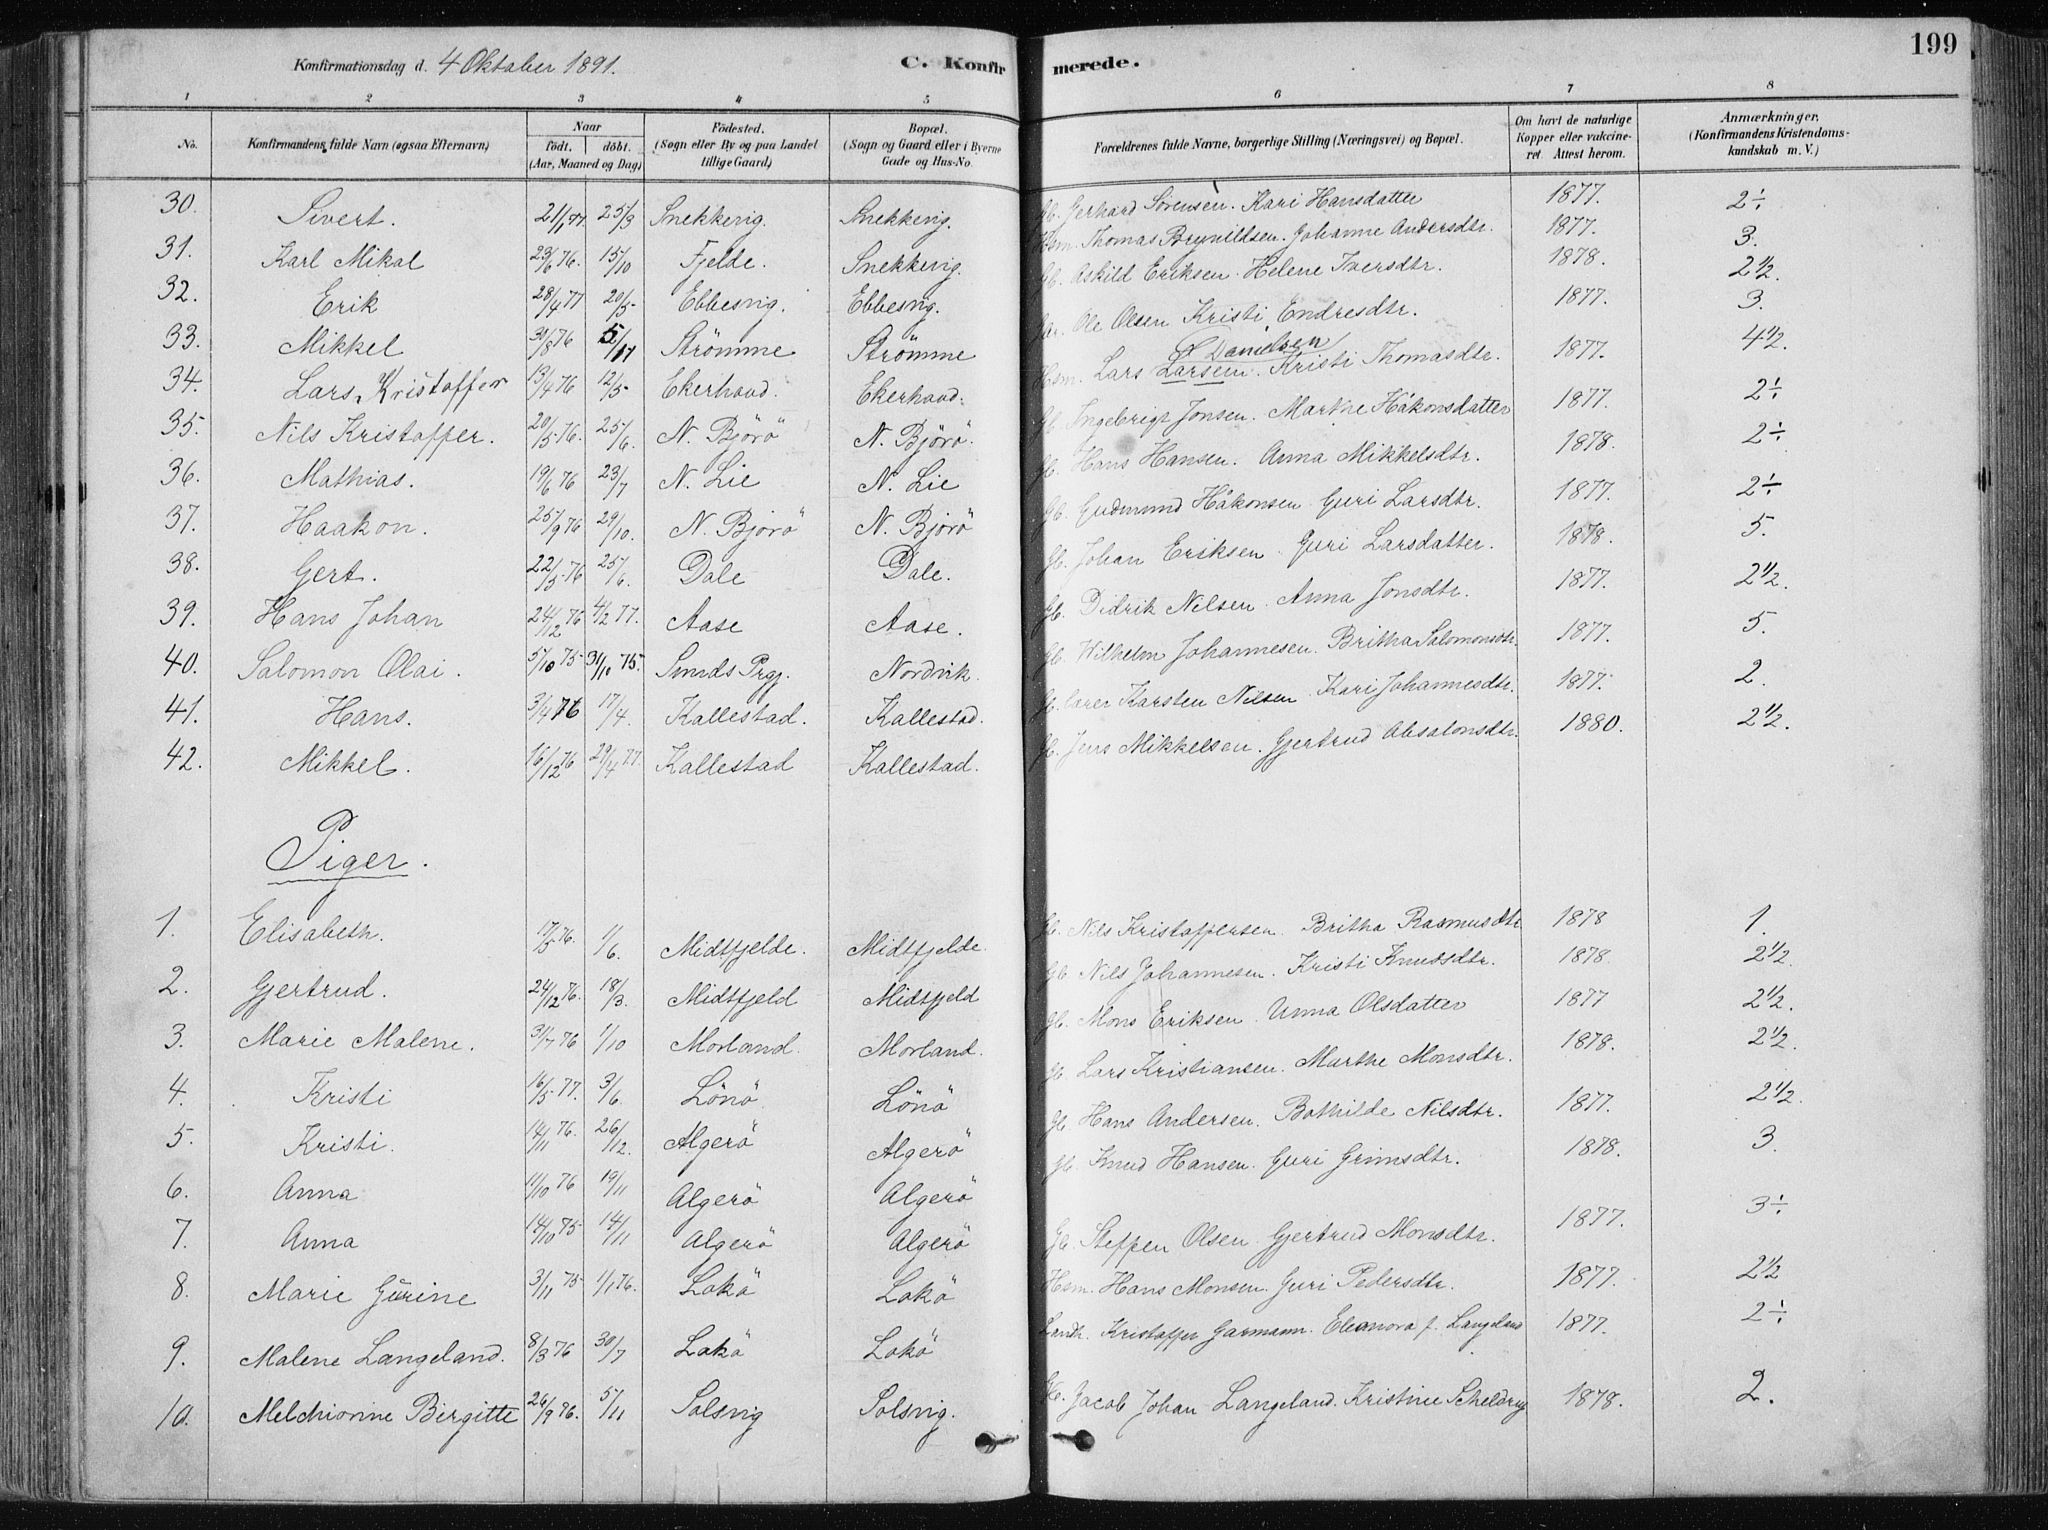 Konfirmationsdag d. 4 Oktober 1891. C. Konfirmerede. 199
1 2 3 4 5 6 7 8
No. Konfirmandens fulde Navn (ogsaa Efternavn) Naar födt. döbt. (Aar, Maaned og Dag) Födested. (Sogn eller By og paa Landet tillige Gaard) Bopæl. (Sogn og Gaard eller i Byerne Gade og Hus-No. Forældrenes fulde Navne, borgerlige Stilling (Næringsvei) og Bopæl. Om havt de naturlige Kopper eller vakcineret Attest herom. Anmærkninger, (Konfirmandens Kristendomskundskab m. V.)
30. Sivert. 21/1 77 25/3 Snekkevig. Snekkevig. Gb. Gerhard Sörensen. Kari Hansdatter 1877. 2÷
31. Karl Mikal 23/6 76. 15/10 Fjelde. Snekkevig. Hsm. Thomas Brynildsen. Johanne Andersdtr. 1877. 3.
32. Erik 28/4 77 20/5 Ebbesvig. Ebbesvig. Gb. Askild Eriksen. Helene Iversdtr. 1878. 2 1/2
33. Mikkel 30/8 76 5/11 Strömme Strömme Ole Olsen Kristi Endresdtr. 1877. 3.
34. Lars Kristoffer 13/4 76 12/5 Ekerhovd. Ekerhovd. Hsm. Lars Larsen Danielsen Kristi Thomasdtr. 1877. 4 1/2.
35. Nils Kristoffer. 20/5 76. 25/6. N. Björö N. Björö. Gb. Ingebrigt Jonsen. Marthe Håkonsdatter 1877. 2÷
36. Mathias. 19/6 76 23/7 N. Lie N. Lie Gb. Hans Hansen. Anna Mikkelsdtr. 1878. 2÷
37. Haakon. 25/9 76 29/10. N. Björö N. Björö Gb. Gudmund Håkonsen. Guri Larsdtr. 1877. 2÷
38. Gert. 22/5 76 25/6. Dale Dale. Gb. Johan Eriksen. Guri Larsdatter. 1878. 5.
39. Hans Johan 24/12 76 4/2 77. Aase Aase. Gb. Didrik Nilsen. Anna Jonsdtr. 1877. 2 1/2.
40. Salomon Olai. 5/10 75 31/10 75. Sunds Prgj. Nordvik. Gb. Wilhelm Johannesen. Britha Salomonsdtr. 1877. 5.
41. Hans. 3/4 76 17/4. Kallestad. Kallestad. Gb. Karsten Nilsen Kari Johannesdtr. 1877. 2.
42. Mikkel. 16/12 76 29/4 77. Kallestad Kallestad. Gb. Jens Mikkelsen. Gjertrud Absalonsdtr. 1880. 2 1/2.
Piger.
1. Elisabeth. 17/5 76. 1/6. Midtfjelde. Midtfjelde. Gb. Nils Kristoffersen. Britha Rasmusdtr 1878 1.
2. Gjertrud. 24/12 76. 18/3. Midtfjeld Midtfjeld Gb. Nils Johannesen. Kristi Knudsdtr. 1878. 2 1/2.
3. Marie Malene. 31/7 76 1/10 Morland. Morland. Gb. Mons Eriksen. Anna Olsdatter 1877 2 1/2.
4. Kristi 16/5 77. 3/6. Lönö Lönö Gb. Lars Kristiansen. Marthe Monsdtr. 1878. 2 1/2.
5. Kristi. 14/11 76. 26/12. Algerö Algerö Gb. Hans Andersen. Bothilde Nilsdtr. 1877. 2 1/2.
6. Anna 11/10 76 19/11 Algerö Algerö Gb. Knud Hansen. Guri Grimsdtr. 1878. 3
7. Anna 14/10 75 14/11 Algerö Algerö Gb. Steffen Olsen. Gjertrud Monsdtr. 1877. 3÷
8. Marie Gurine 3/11 75 1/1 76. Lokö Lokö Hsm. Hans Monsen. Guri Pedersdtr. 1877. 2 1/2
9. Malene Langeland. 8/3 76 30/7 Lokö Lokö Landh. Kristoffer Garmann. Eleanora f. Langeland 1877. 2÷
10. Melchiorine Birgitte 26/9 76. 5/11 Solsvig Solsvig. Jacob Johan Langeland. Kristine Scheldrup 1878. 2.